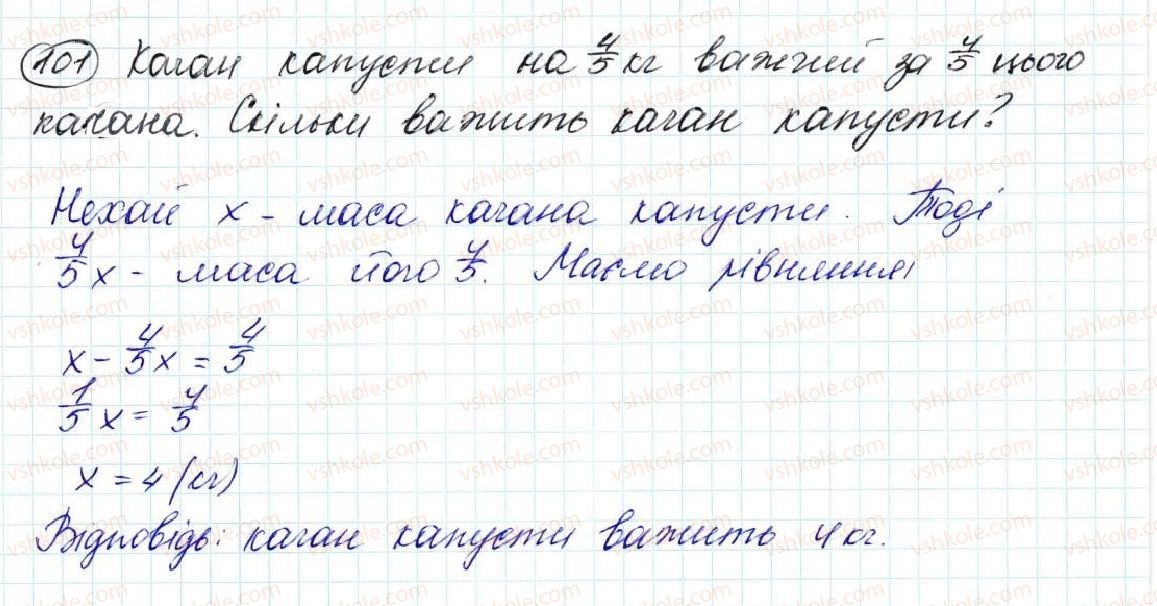 101 Качан капусти на 4/5 кг важчий за 4/5 цього
качана. Скільки важить качан капусти?
Нехай x - маса качана капусти. Тоді
4/5 x - маса його 4/5. Маємо рівняння
x - 4/5 x = 4/5
1/5 x = 4/5
x = 4 (кг)
Відповідь: качан капусти важить 4 кг.
vshkole.com